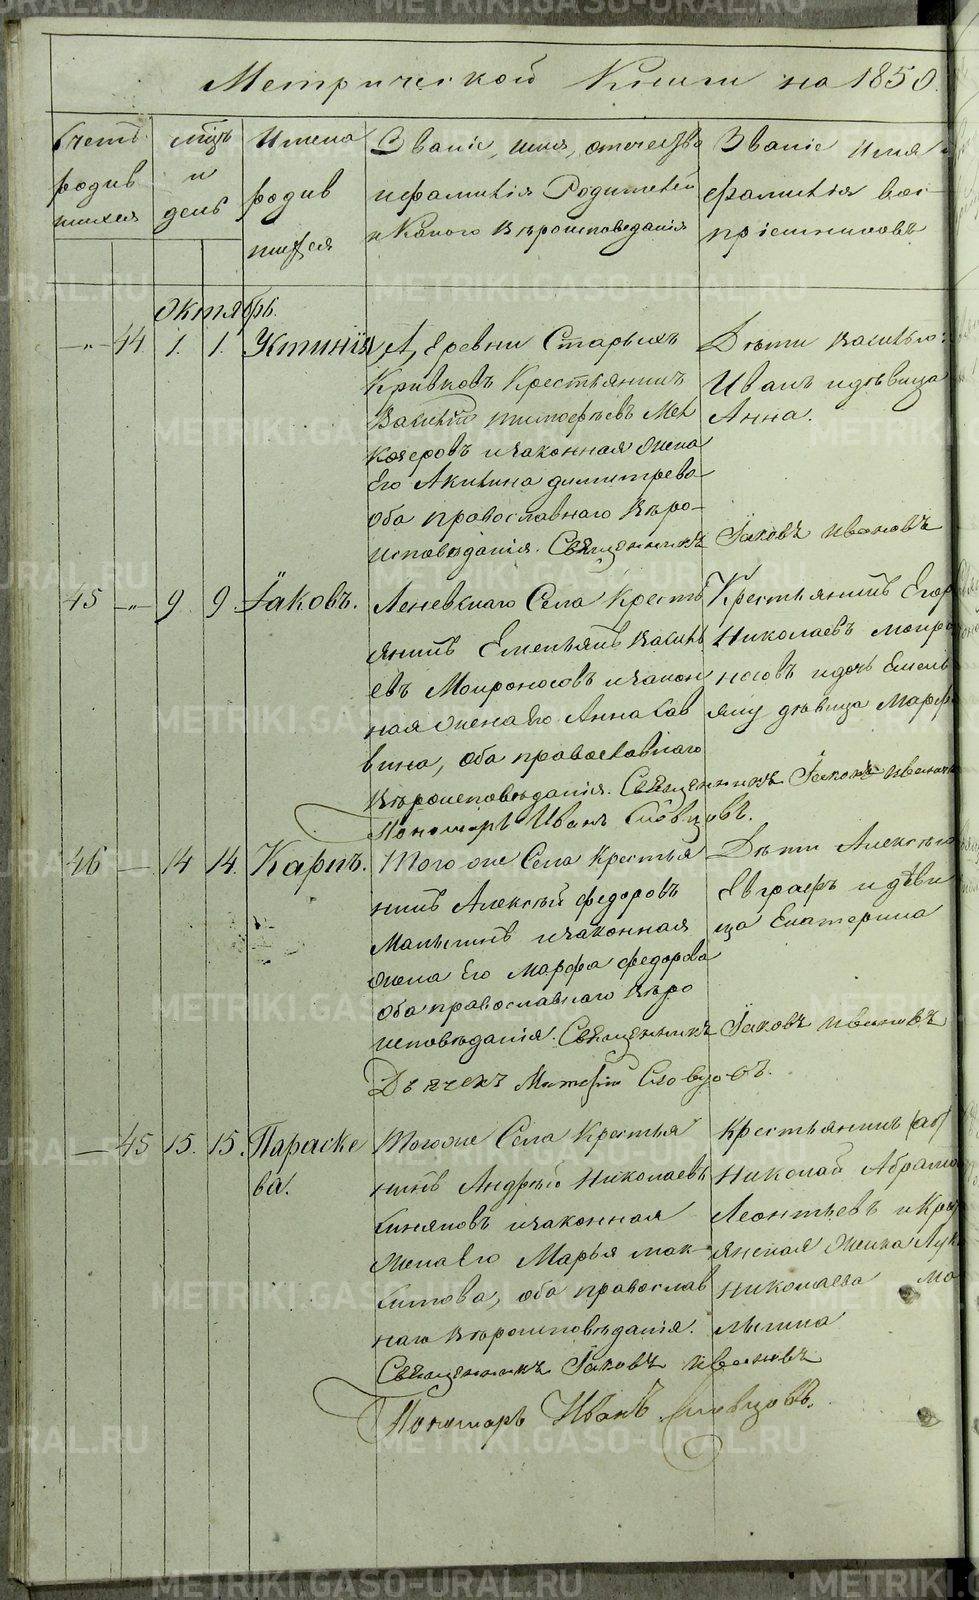 Метрической Книги на 1850.
Счетъ родившихся
мцъ и день
Имена родившихся
Званіе, имя, отечество и фамилія Родителей и Какого Вѣроисповеданія
Званіе имя и фамилія воспріемниковъ
Октябрь.
—„— 44. 1. 1. Устинія
Деревни Старыхъ
Кривковъ Крестьянинъ
Василій Тимофѣевъ Мел
кочеровъ и законная жена
Его Акилина димитрева
оба православнаго Вѣро-
исповѣданія. Священникъ Іаковъ Ивановъ
Дѣти Василью:
Иванъ и дѣвица
Анна.
45 —„— 9. 9. Іаковъ.
Леневскаго Села Кресть
янинъ Емельянъ Василь
евъ Мокроносовъ и закон
ная жена Его Анна Сав
вина, оба православнаго
Вѣроисповѣданія. Священникъ Іаковъ Ивановъ
Пономарь Иванъ Словцовъ.
Крестьянинъ Егор
Николаевъ Мокро
носовъ и дочь Емель
яну дѣвица Марфа
46 — 14 14. Карпъ.
Того же Села Крестья
нинъ Алексѣй Федоровъ
Малыгинъ и законная
жена Его Марфа Федорова
оба православнаго Вѣро
исповѣданія. Священникъ Іаковъ Ивановъ
Дьячекъ Матфій Словцовъ.
Дѣти Алексѣю
Евграфъ и дѣви
ца Екатерина
— 45 15. 15. Параске
ва.
Того же Села Крестья
нинъ Андрѣй Николаевъ
Синяковъ и законная
жена Его Марья мак-
симова, оба православ
наго Вѣроисповѣданія.
Священникъ Іаковъ Ивановъ
Пономарь Иванъ Словцовъ.
Крестьянинъ
Николай Абрамо
Леонтьевъ и Крес
янская женка
Николаева Ма
лыгина
METRIKI.GASO-URAL.RU